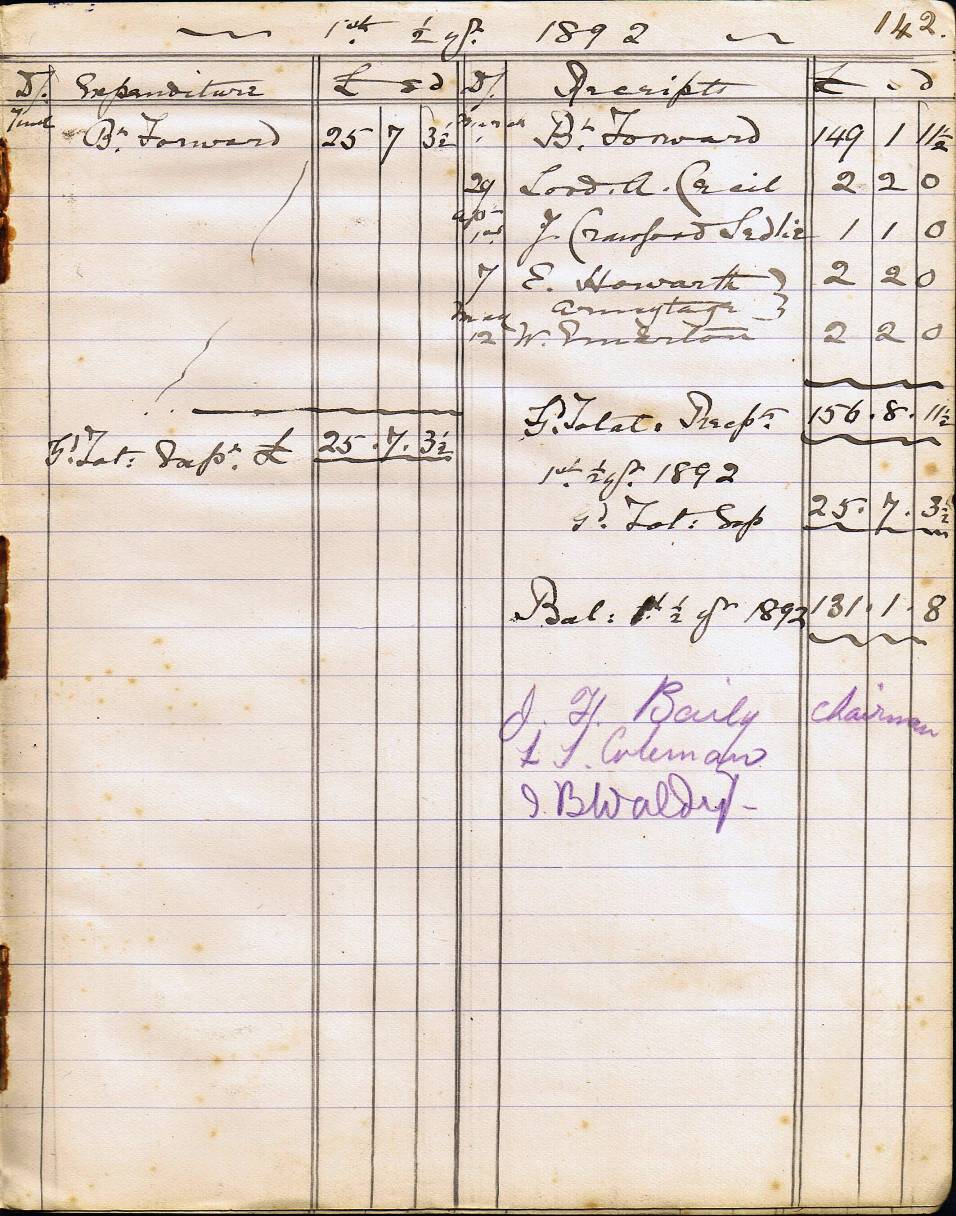 1st ½ yr. 1892 142.
Dr. Expenditure £ s d Dr. Receipts £ s d
Bt. Forward 25 7 3½ March Bt. Forward 149 1 11½
29 Lord. A. Cecil 2 2 0
Apr 1st J. Crawford Ledlie 1 1 0
7 E. Howarth } 2 2 0
Armytage }
May 12 W. Emerton 2 2 0
Gd. Total: Recpts 156. 8. 11½
Gd. Tot: Expt. £ 25. 7. 3½
1st ½ yr. 1892
Gd. Tot: Exp 25. 7. 3½
Bal: 1st ½ yr 1892 131. 1. 8
J. H. Baily Chairman
L S. Coleman
J. B Waldy